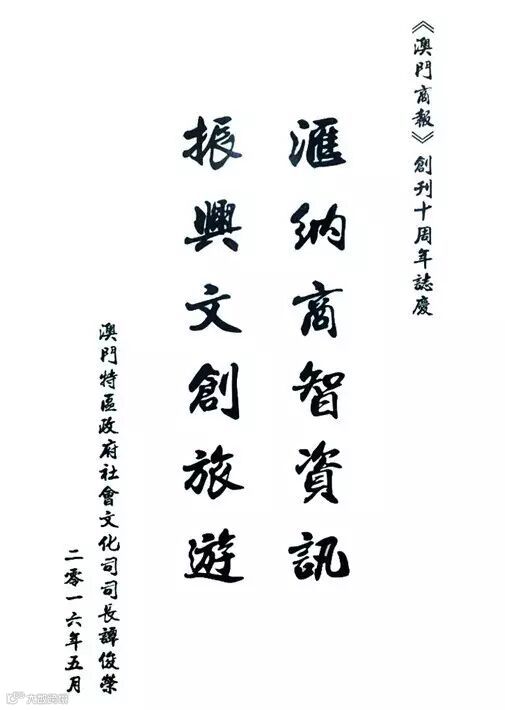 《澳門商報》創刊十周年誌慶
滙納商智資訊
振興文創旅遊
澳門特區政府社會文化司司長譚俊榮
二零一六年五月